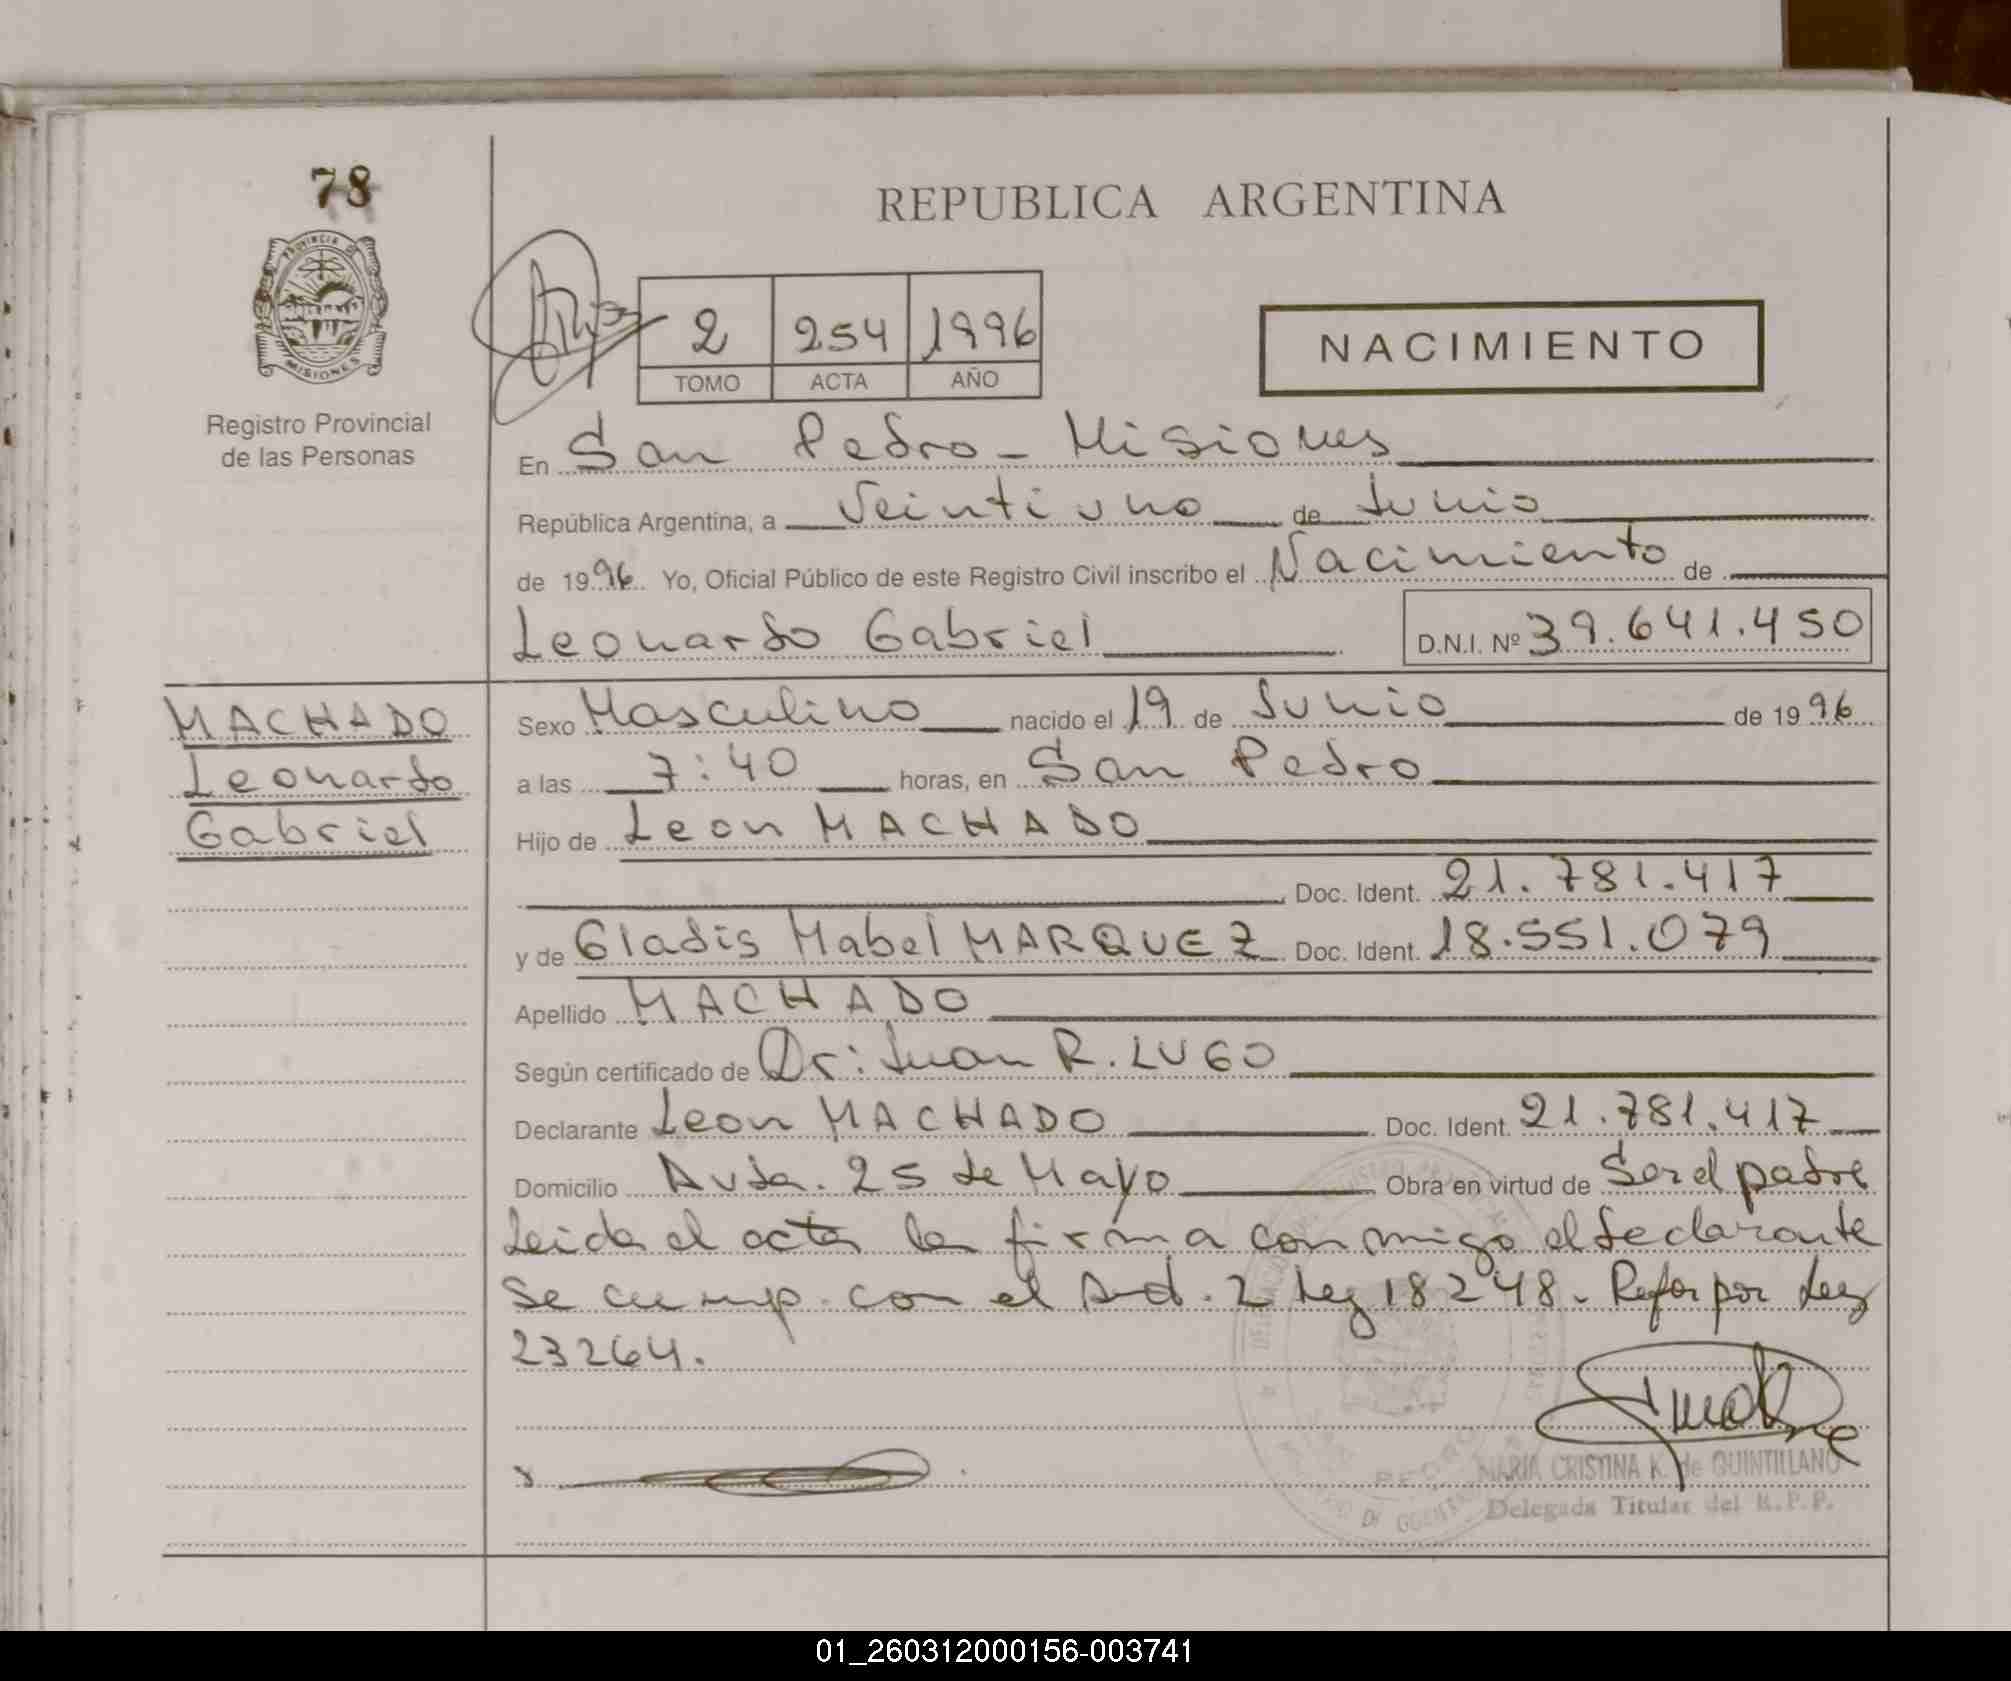 78
REPUBLICA ARGENTINA
PROVINCIA DE
MISIONES
Registro Provincial
de las Personas
2 254 1996
TOMO ACTA AÑO
NACIMIENTO
En San Pedro - Misiones
República Argentina, a Veintiuno de Junio
de 1996 Yo, Oficial Público de este Registro Civil inscribo el Nacimiento de
Leonardo Gabriel D.N.I. Nº 39.641.450
MACHADO
Leonardo
Gabriel
Sexo Masculino nacido el 19 de Junio de 1996
a las 7:40 horas, en San Pedro
Hijo de Leon MACHADO
Doc. Ident. 21.781.417
y de Gladis Mabel MARQUEZ Doc. Ident. 18.551.079
Apellido MACHADO
Según certificado de Dr: Juan R. LUGO
Declarante Leon MACHADO Doc. Ident. 21.781.417
Domicilio Avda. 25 de Mayo Obra en virtud de Ser el padre
Leida el acta la firma conmigo el declarante
Se cump. con el Art. 2 Ley 18248. Refor por Ley
23264.
MARIA CRISTINA K. de QUINTILLANO
Delegada Titular del R.P.P.
01_260312000156-003741